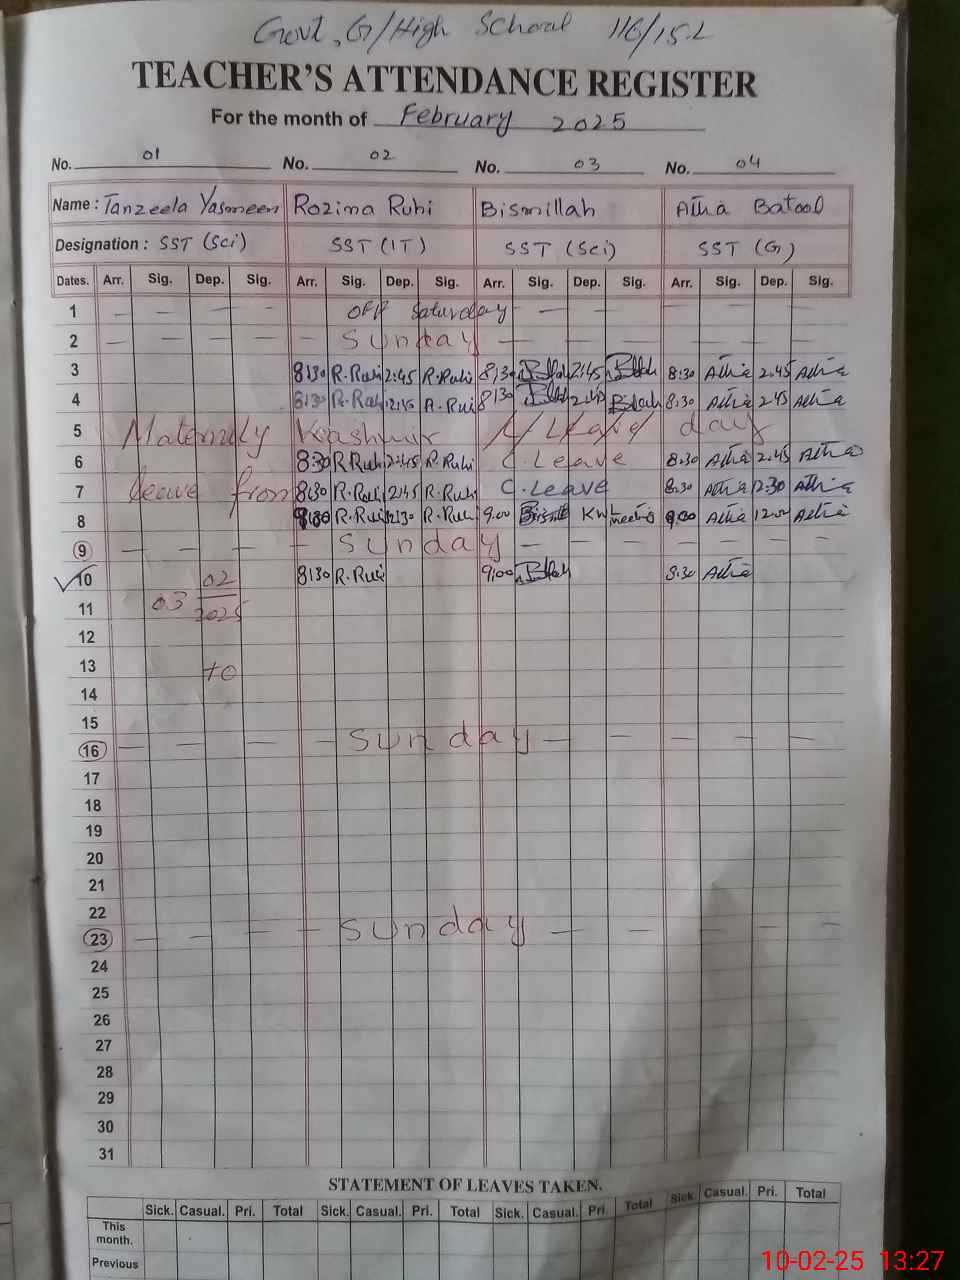 Govt, G/High School 116/15-L
TEACHER'S ATTENDANCE REGISTER
For the month of February 2025
No. 01 No. 02 No. 03 No. 04
Name : Tanzeela Yasmeen Rozima Ruhi Bismillah Attia Batool
Designation : SST (Sci) SST (IT) SST (Sci) SST (G)
Dates. Arr. Sig. Dep. Sig. Arr. Sig. Dep. Sig. Arr. Sig. Dep. Sig. Arr. Sig. Dep. Sig.
1 — — — — OFF Saturday — — — — —
2 — — — — Sunday — — — — — — —
3 8:30 R.Ruhi 2:45 R.Ruhi 8:30 2:45 8:30 Attia 2:45 Attia
4 8:30 R.Ruhi 2:45 R.Rui 8:30 2:45 8:30 Attia 2:45 Attia
5 Maternity Kashmir day
6 8:30 R Ruhi 2:45 R.Ruhi C.Leave 8:30 Attia 2:45 Attia
7 leave from 8:30 R.Ruhi 2:45 R.Ruhi C.Leave 8:30 Attia 2:30 Attia
8 R.Ruhi 12:30 R.Ruhi 9:00 meeting 9:00 Attia 12:00 Attia
9 — — — — Sunday — — — — — — —
10 02 8:30 R.Rui 9:00 8:30 Attia
11 03 2025
12
13 to
14
15
16 — — — — Sunday — — — — — —
17
18
19
20
21
22
23 — — — — Sunday — — — — —
24
25
26
27
28
29
30
31
STATEMENT OF LEAVES TAKEN.
Sick. Casual. Pri. Total Sick. Casual. Pri. Total Sick. Casual. Pri. Total Sick Casual. Pri. Total
This
month.
Previous
10-02-25 13:27